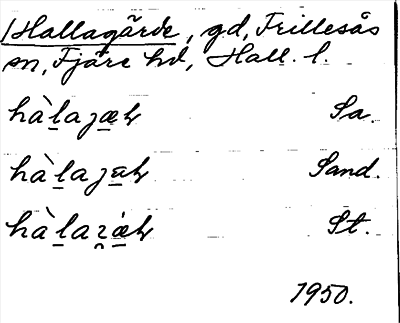 /Hallagärde, gd, Frillesås
sn, Fjäre hd, Hall. l.
hàlagæɦ Sa.
hàlagaɦ Sand.
St.
1950.